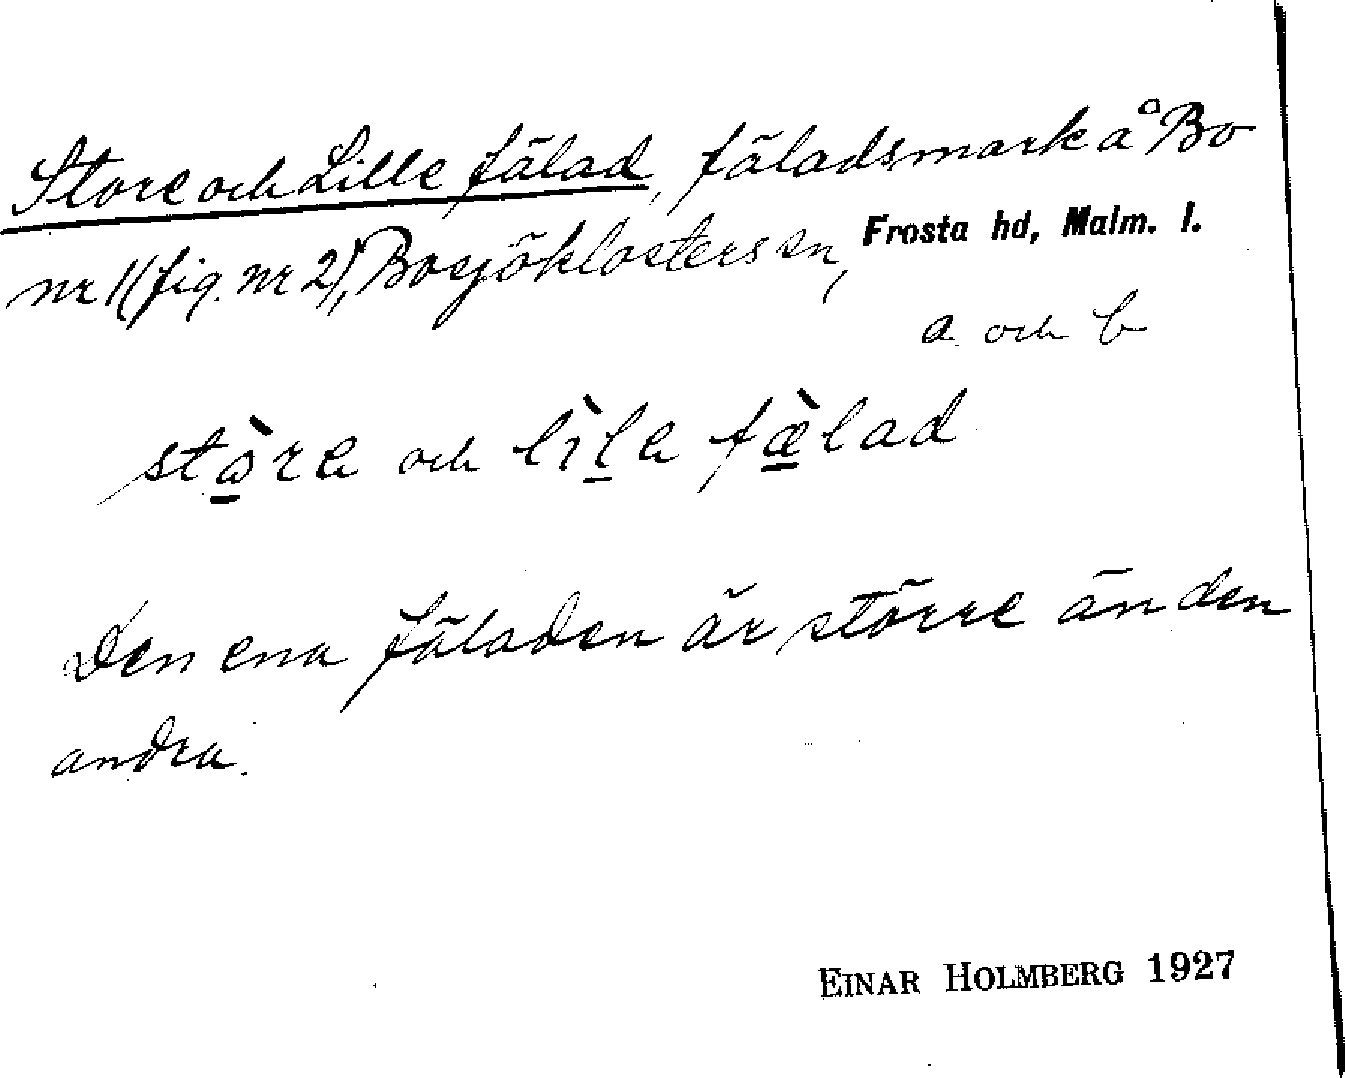 Store och Lille fälad, fäladsmark å Bo
nr 1 (fig. nr 2), Bosjöklosters sn, Frosta hd, Malm. l.
a och b
stòre och lìle fæ̀lad
Den ena fäladen är större än den
andra.
EINAR HOLMBERG 1927